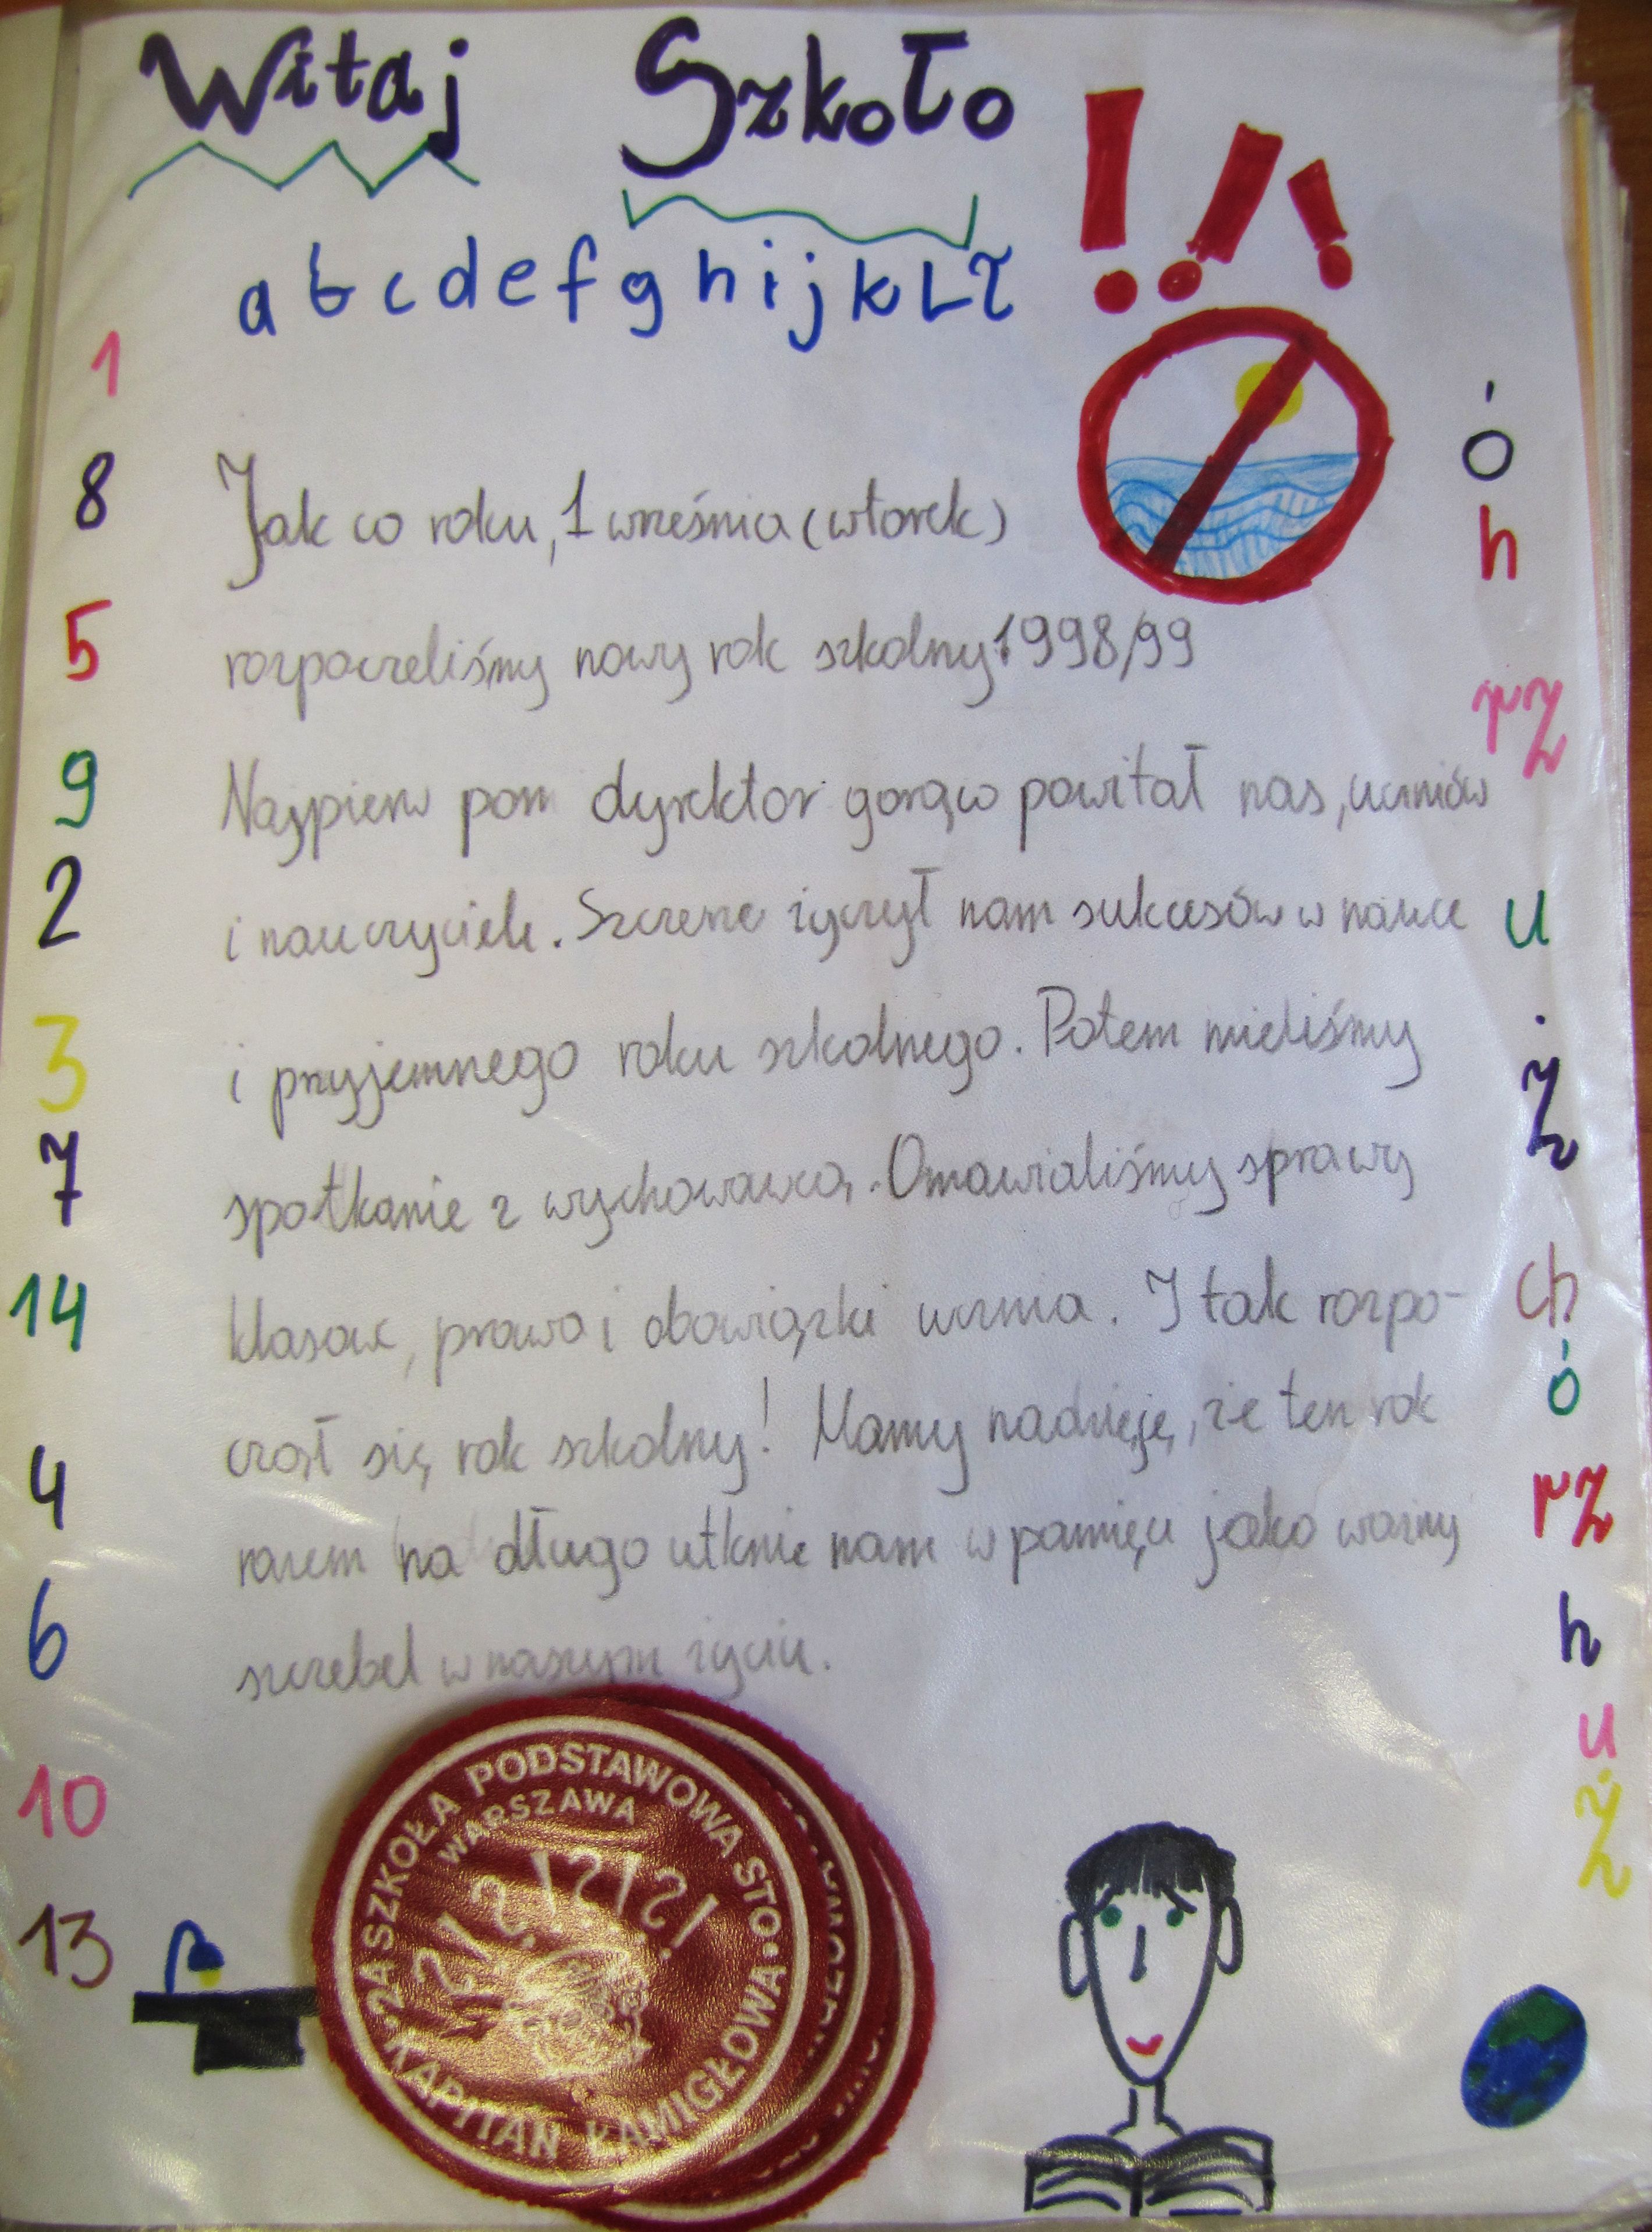 Witaj Szkoło !!!
a b c d e f g h i j k L ł
1
8
5
9
2
3
7
14
4
6
10
13
Jak co roku, 1 września (wtorek)
rozpoczeliśmy nowy rok szkolny 1998/99
Najpierw pan dyrektor gorąco powitał nas, uczniów
i nauczycieli. Szczerze życzył nam sukcesów w nauce
i przyjemnego roku szkolnego. Potem mieliśmy
spotkanie z wychowawcą. Omawialiśmy sprawy
klasowe, prawa i obowiązki ucznia. I tak rozpo-
czął się rok szkolny! Mamy nadzieję, że ten rok
razem na długo utknie nam w pamięci jako ważny
szczebel w naszym życiu.
ó
h
rz
u
ż
ch
ó
rz
h
u
ż
2A SZKOŁA PODSTAWOWA STO
WARSZAWA
?!?!?!?!?!
KAPITAN ŁAMIGŁOWA